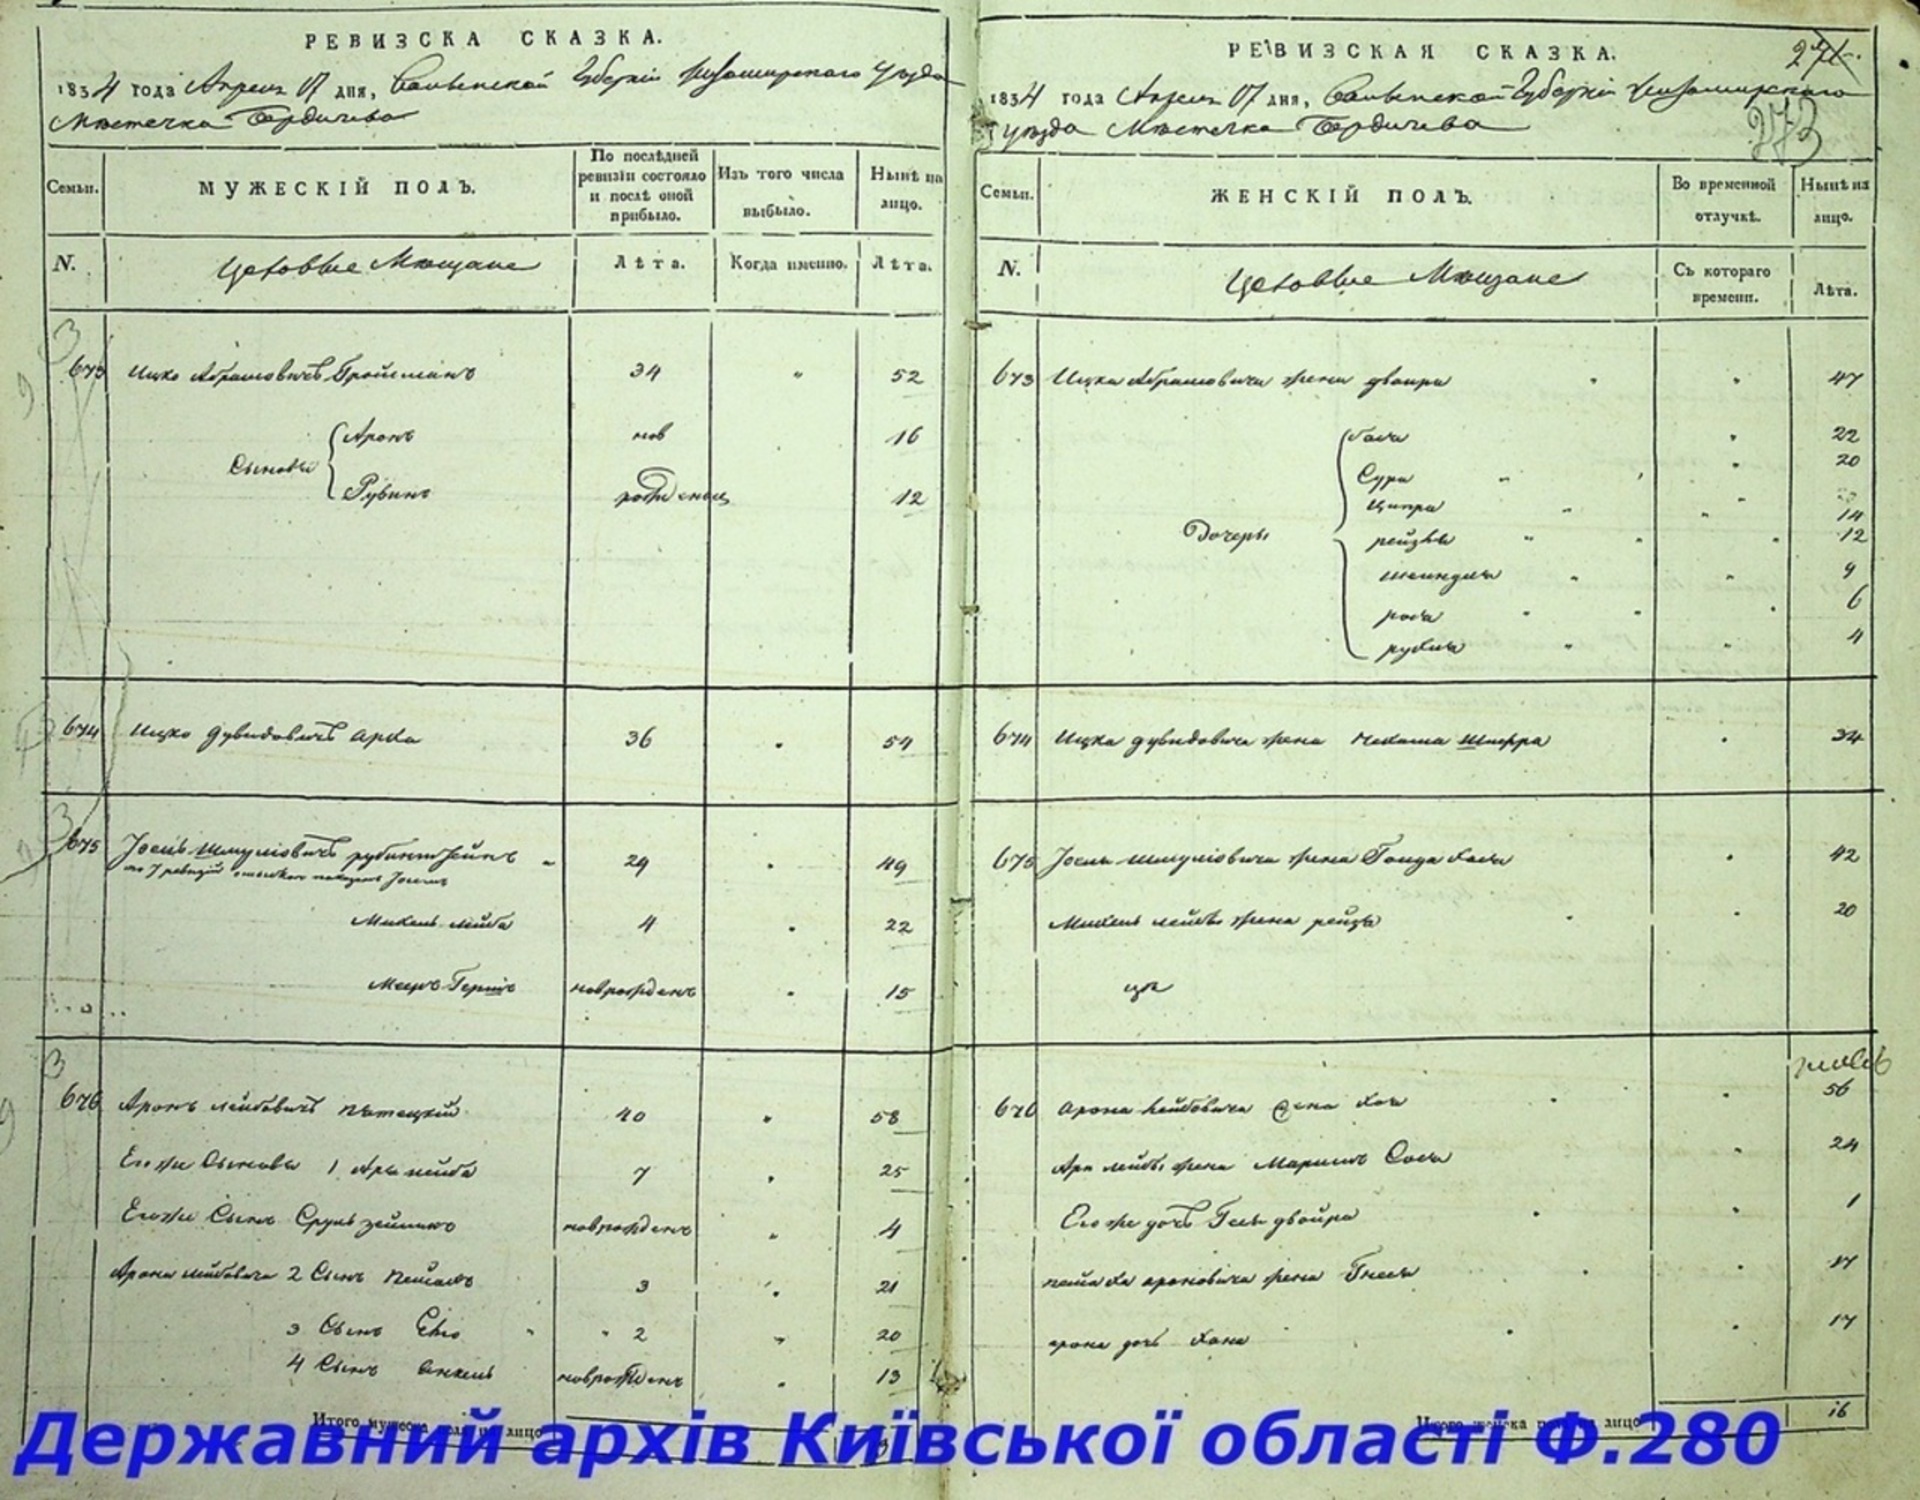 РЕВИЗСКА СКАЗКА.
1834 года Апреля 17 дня, Волынской Губернии Житомирского Уезда
Местечка Бердичева
Семьи.
МУЖЕСКІЙ ПОЛЪ.
По послѣдней ревизіи состояло и послѣ оной прибыло.
Изъ того числа выбыло.
Нынѣ на лицо.
N.
Цеховые Мещане
Лѣта.
Когда именно.
Лѣта.
673 Ицко Абрамовичъ Гройсманъ 34 " 52
Сыновья
Аронъ нов 16
Рувинъ рожденны 12
674 Ицко Дувидовичъ 36 54
675 Іосль Шмулiовичъ рубинштейнъ 29 49
по 7 ревизіи
Михель лейба 4 22
Мееръ Гершъ новрожденъ 15
676 Аронъ лейбовичъ 40 58
Его же Сыновья 1 Арье лейба 7 25
Его же Сынъ Сруль зейликъ новрожденъ 4
Арона лейбовича 2 Сынъ Пейсахъ 3 21
3 Сынъ 2 20
4 Сынъ Янкель новрожденъ 13
Итого мужеска пола на лицо
РЕВИЗСКАЯ СКАЗКА.
273
1834 года Апреля 17 дня, Волынской Губерніи Житомирского
уезда Местечка Бердичева
Семьи.
ЖЕНСКІЙ ПОЛЪ.
Во временной отлучкѣ.
Нынѣ на лицо.
N.
Цеховые Мещане
Съ котораго времени.
Лѣта.
673 Ицка Абрамовича жена двойра 47
Дочеры
бася 22
Сура 20
Ципра 14
рейзя 12
шейндля 9
рося 6
рухля 4
674 Ицка дувидовича жена Шифра 34
675 Іосля Шмулiовича жена Голда хася 42
Михель лейбы жена рейзя 20
676 Арона лейбовича жена хая 56
Аря лейбы жена Марьям Сося 24
Его же дочь Геня двойра 1
пейсаха ароновича жена Гнеся 17
арона дочь хана 17
Итого женска пола на лицо 16
Державний архів Київської області Ф.280